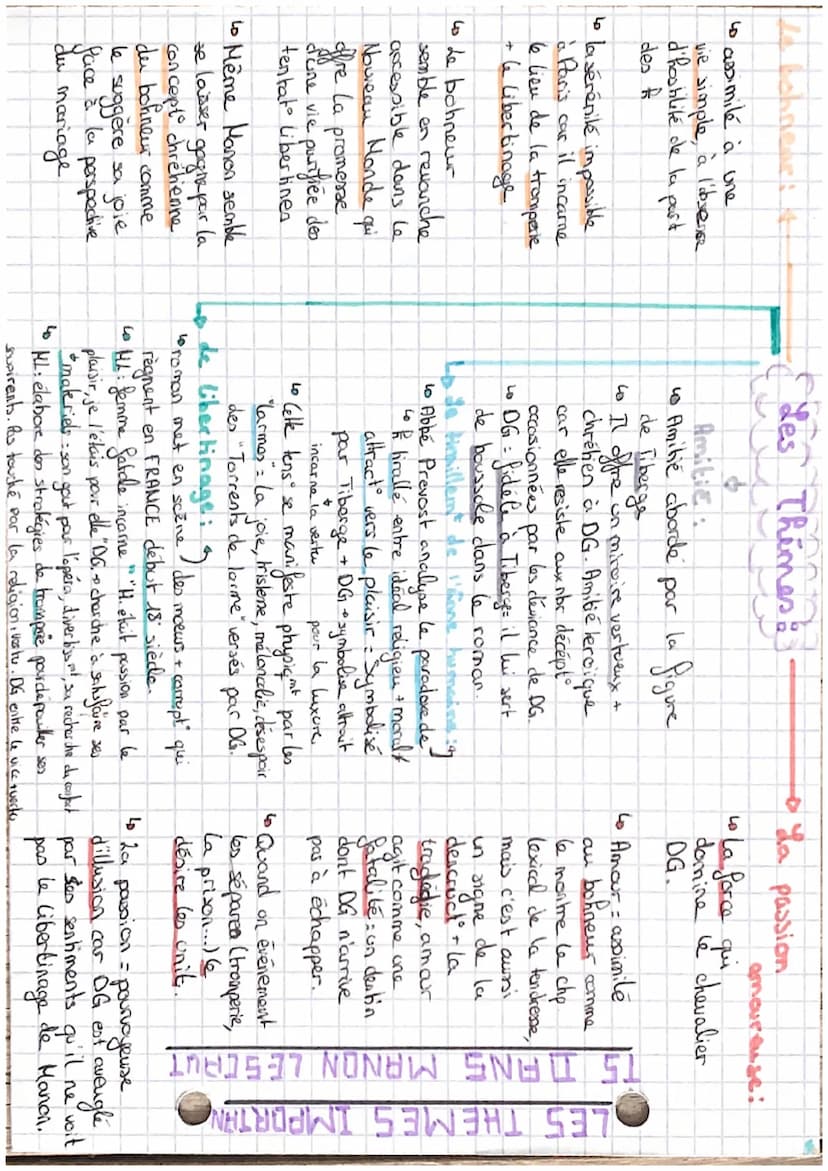 LES THEMES IMPORTAN
TS DANS MANON LESCAUT
Les Thèmes :
Le bohneur :
↳ assimilé à une
vie simple, à l'absence
d'hostilité de la part
des
↳ la sérénité impossible
à Paris car il incarne
le lieu de la tromperie
+ le libertinage
↳ Le bohneur
semble en revanche
accessible dans le
Nouveau Monde qui
offre la promesse
d'une vie purifiée des
tentat° libertines
↳ Même Manon semble
se laisser gagner par la
concept° chrétienne
du bohneur comme
le suggère sa joie
face à la perspective
du mariage
Amitié :
↳ Amitié abordé par la figure
de Tiberge
↳ Il offre un miroire vertueux +
chrétien à DG. Amitié héroïque
car elle resiste aux nbr décept°
occasionnées par les déviance de DG.
↳ DG = fidèle à Tiberge = il lui sert
de boussole dans le roman.
↳ Le tiraillent de l'âme humaine :
↳ Abbé Prévost analyse le paradoxe de
tiraillé entre idéal religieu + moral
attract° vers le plaisir = Symbolisé
par Tiberge + DG → symbolise attrait
incarne la vertu pour la luxure.
↳ Cette tens° se manifeste physiqmt par les
"larmes" = la joie, tristesse, mélancolie, désespoir
des "Torrents de larme" versés par DG.
↳ Le libertinage :
↳ roman met en scène des mœurs + corrupt° qui
règnent en FRANCE début 18e siècle.
↳ ML : femme fatale incarne "M. était passion par le
plaisir, je l'étais par elle" DG → cherche à satisfaire ses
matériels : son gout par l'opéra, divertissmt, sa recherche du confort
↳ ML : élabore des stratégies de tromperie pour dépouiller ses
Pas touché par la religion : vertu. DG entre le vice + vertu
La passion
amoureuse :
↳ La force qui
domine le chevalier
DG.
↳ Amour = assimilé
au bohneur comme
le montre le chp
lexical de la tendresse,
mais c'est aussi
un signe de la
destruct° + la
tradégie, amour
agit comme une
fatalité = un destin
dont DG n'arrive
pas à échapper.
↳ Quand un événement
les sépares (tromperie,
la prison...) le
désire les unit.
↳ La passion = pourvoyeuse
d'illusion car DG est aveuglé
par ses sentiments qu'il ne voit
pas le libertinage de Manon.